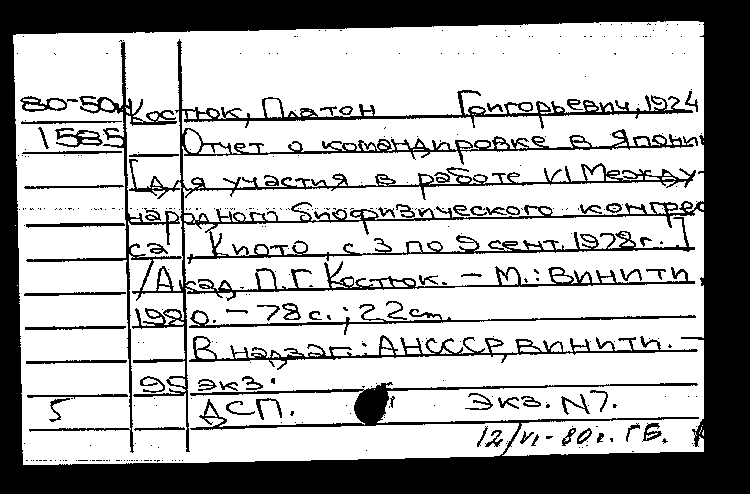 80-50к Костюк, Платон Григорьевич, 1924
1585 Отчет о командировке в Япони
[для участия в работе VI Между-
народного биофизического конгрес
са, Киото, с 3 по 9 сент. 1978г.]
/Акад. П.Г. Костюк. – М.: ВИНИТИ,
1980. – 78 с.; 22 см.
В надзаг.: АНСССР, ВИНИТИ. –
95 экз.
5 ДСП. Экз. N7.
12/VI-80г. ГБ.